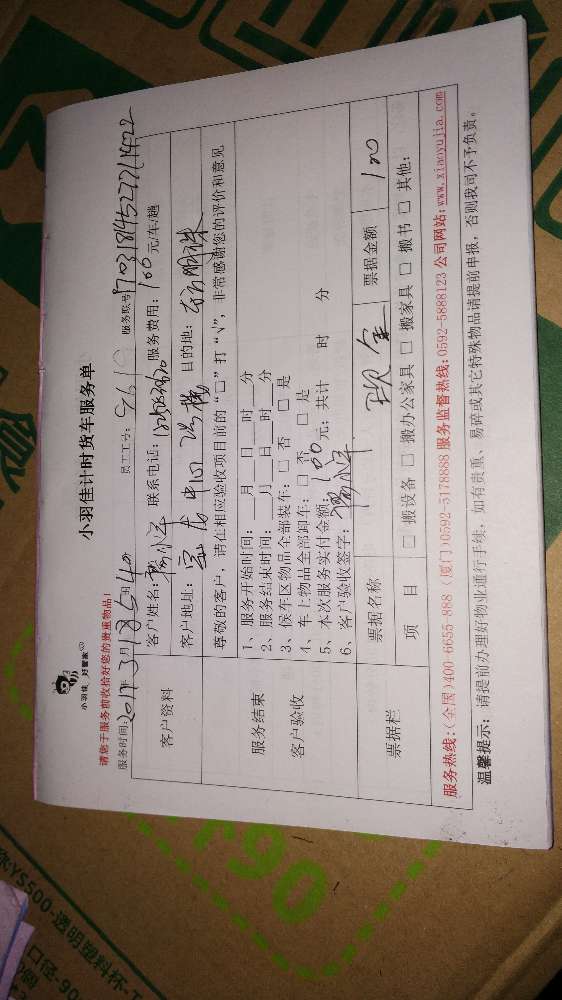 小羽佳计时货车服务单
小羽佳 好管家
请您于服务前收拾好您的贵重物品！
服务时间: 2017年3月18日 员工工号: 服务联号
客户资料
客户姓名: 联系电话: 服务费用: 100 元/车/趟
客户地址: 目的地:
服务结束
客户验收
尊敬的客户，请在相应验收项目前的“□”打“√”，非常感谢您的评价和意见
1、服务开始时间: 月 日 时 分
2、服务结束时间: 月 日 时 分
3、候车区物品全部装车: □ 否 □ 是
4、车上物品全部卸车: □ 否 □ 是
5、本次服务实付金额: 100 元; 共计 时 分
6、客户验收签字:
票据栏
票据名称 现金 票据金额 100
项 目 □ 搬设备 □ 搬办公家具 □ 搬家具 □ 搬书 □ 其他:
服务热线: (全国)400-6655-888 (厦门)0592-5178888 服务监督热线: 0592-5888123 公司网站: www.xiaoyujia.com
温馨提示: 请提前办理好物业通行手续，如有贵重、易碎或其它特殊物品请提前申报，否则我司不予负责。
r90
YS500-透明塑料杯-T
口径-90